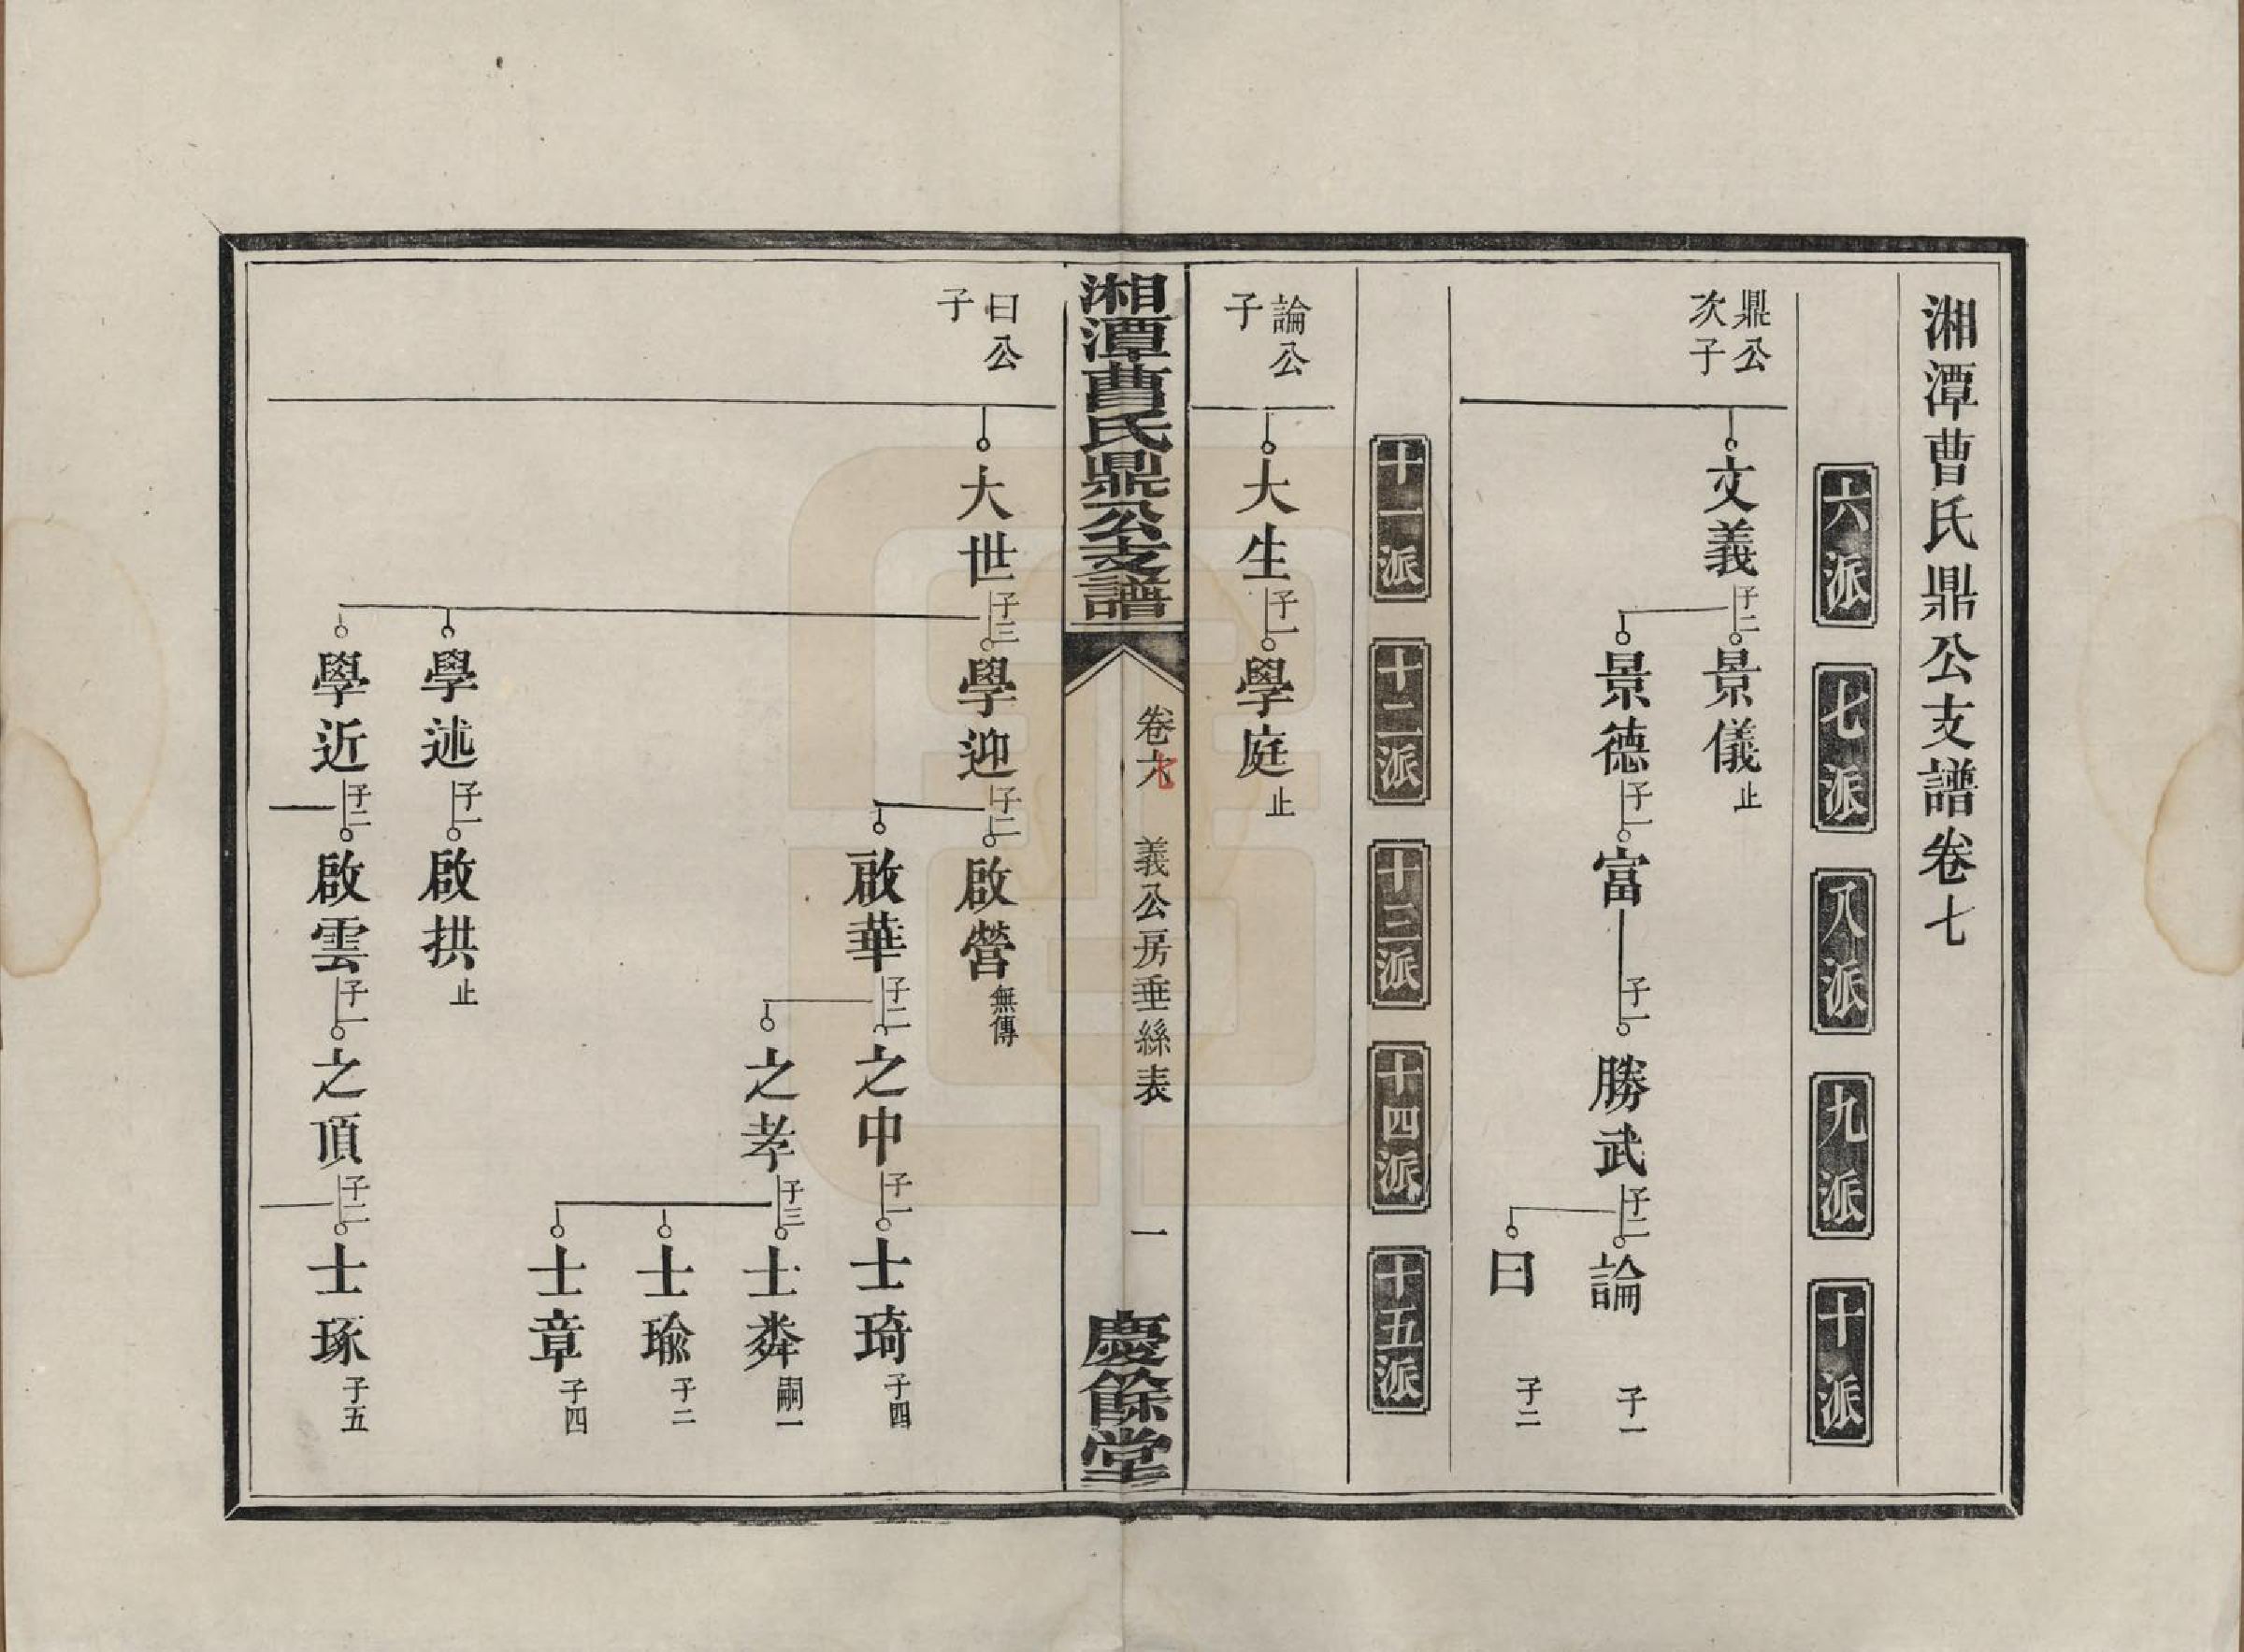 湘潭曹氏鼎公支譜卷七
六派 七派 八派 九派 十派
鼎公
次子
文義 子二 景儀 止
景德 子一 富 子一 勝武 子二 論 子一
曰 子二
十一派 十二派 十三派 十四派 十五派
論公
子
大生 子一 學庭 止
湘潭曹氏鼎公支譜 卷七 義公房垂絲表 一 慶餘堂
曰公
子
大世 子三 學迎 子二 啟營 無傳
啟華 子二 之中 子一 士琦 子四
之孝 子三 士粦 嗣一
士瑜 子二
士章 子四
學述 子一 啟拱 止
學近 子二 啟雲 子一 之頂 子二 士琢 子五